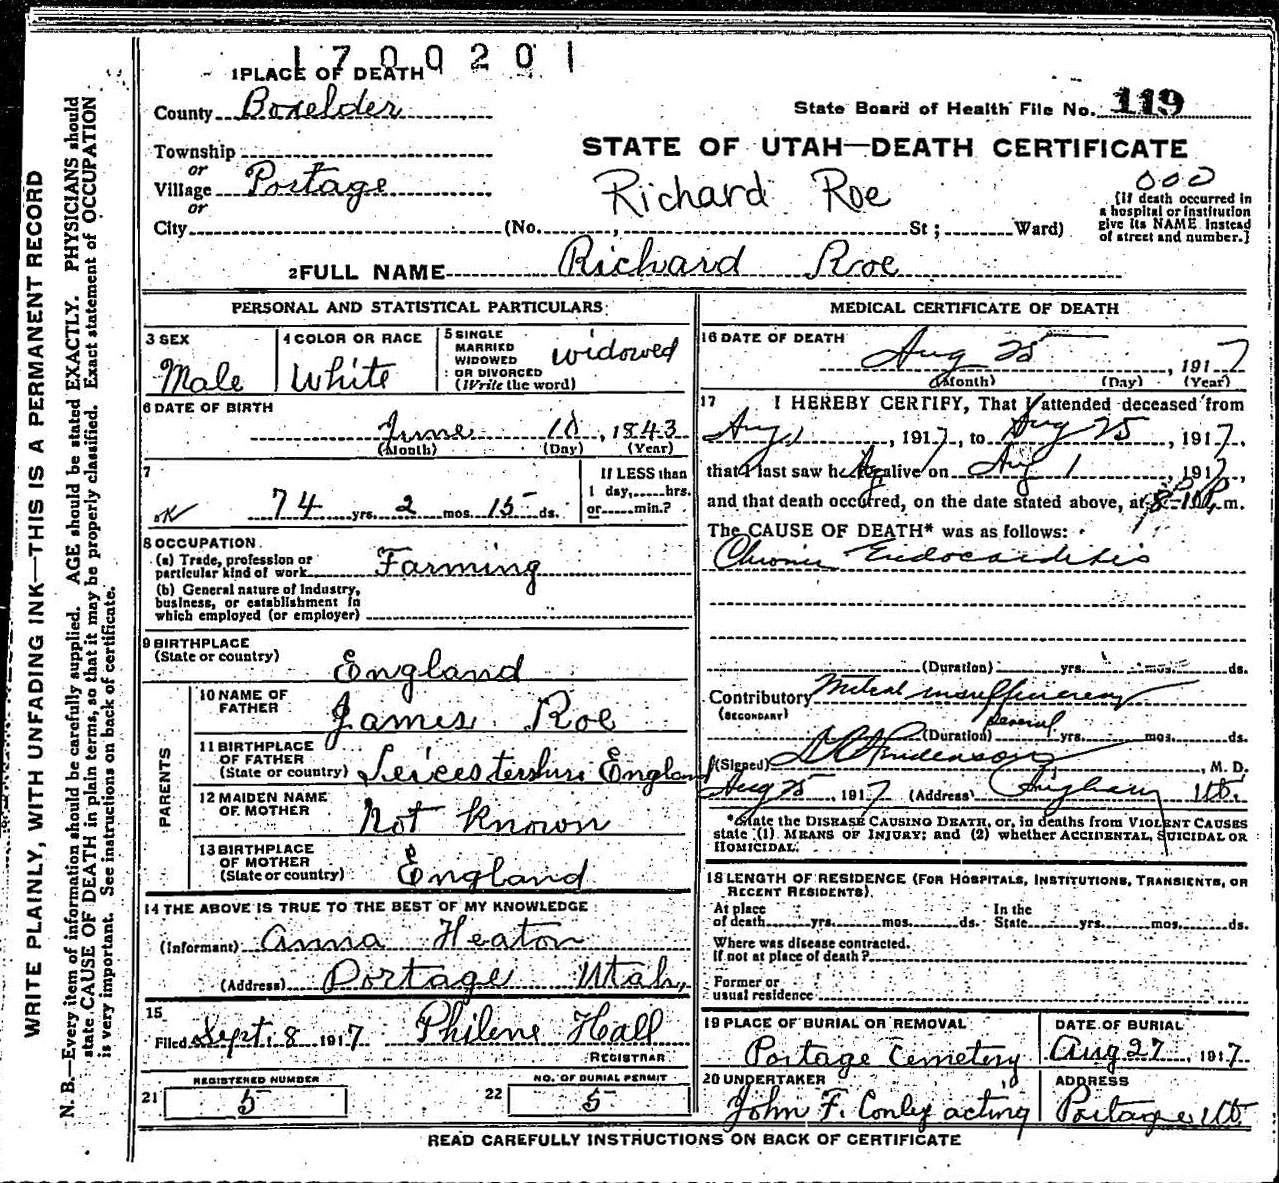 1700201
1 PLACE OF DEATH
County Boxelder
State Board of Health File No. 119
Township
or
Village Portage
or
City (No. , St ; Ward)
STATE OF UTAH—DEATH CERTIFICATE
Richard Roe
000
[If death occurred in
a hospital or institution
give its NAME instead
of street and number.]
2 FULL NAME Richard Roe
PERSONAL AND STATISTICAL PARTICULARS
3 SEX
Male
4 COLOR OR RACE
White
5 SINGLE
MARRIED
WIDOWED
OR DIVORCED
(Write the word)
widowed
6 DATE OF BIRTH
June 10, 1843
(Month) (Day) (Year)
7
OK 74 yrs. 2 mos. 15 ds.
If LESS than
1 day, hrs.
or min.?
8 OCCUPATION
(a) Trade, profession or
particular kind of work Farming
(b) General nature of industry,
business, or establishment in
which employed (or employer)
9 BIRTHPLACE
(State or country)
England
PARENTS
10 NAME OF
FATHER
James Roe
11 BIRTHPLACE
OF FATHER
(State or country) Leicestershire England
12 MAIDEN NAME
OF MOTHER
Not Known
13 BIRTHPLACE
OF MOTHER
(State or country) England
14 THE ABOVE IS TRUE TO THE BEST OF MY KNOWLEDGE
(Informant) Anna Heaton
(Address) Portage Utah,
15
Filed Sept. 8 1917 Philene Hall
REGISTRAR
REGISTERED NUMBER
21 5
NO. OF BURIAL PERMIT
22 5
MEDICAL CERTIFICATE OF DEATH
16 DATE OF DEATH
Aug 25, 1917
(Month) (Day) (Year)
17 I HEREBY CERTIFY, That I attended deceased from
Aug 1, 1917, to Aug 25, 1917,
that I last saw h alive on Aug 1, 1917,
and that death occurred, on the date stated above, at m.
The CAUSE OF DEATH* was as follows:
Chronic Endocarditis
(Duration) yrs. mos. ds.
Contributory Mitral insufficiency
(SECONDARY)
(Duration) several yrs. mos. ds.
(Signed) , M. D.
Aug 25, 1917 (Address) Ut.
*State the DISEASE CAUSING DEATH, or, in deaths from VIOLENT CAUSES
state (1) MEANS OF INJURY; and (2) whether ACCIDENTAL, SUICIDAL OR
HOMICIDAL.
18 LENGTH OF RESIDENCE (FOR HOSPITALS, INSTITUTIONS, TRANSIENTS, OR
RECENT RESIDENTS).
At place
of death yrs. mos. ds.
In the
State yrs. mos. ds.
Where was disease contracted.
If not at place of death?
Former or
usual residence
19 PLACE OF BURIAL OR REMOVAL
Portage Cemetery
DATE OF BURIAL
Aug 27, 1917
20 UNDERTAKER
John F. Conley acting
ADDRESS
Portage Ut.
READ CAREFULLY INSTRUCTIONS ON BACK OF CERTIFICATE
WRITE PLAINLY, WITH UNFADING INK—THIS IS A PERMANENT RECORD
N. B.—Every item of information should be carefully supplied. AGE should be stated EXACTLY. PHYSICIANS should
state CAUSE OF DEATH in plain terms, so that it may be properly classified. Exact statement of OCCUPATION
is very important. See instructions on back of certificate.